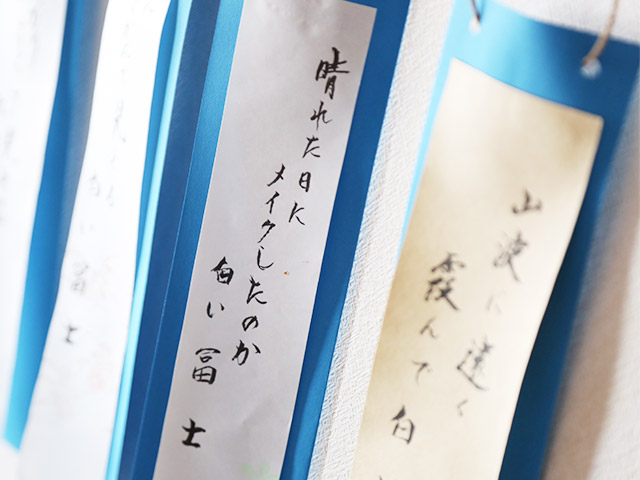 山波に遠く
霞んで白
晴れた日に
メイクしたのか
白い冨士
冨士